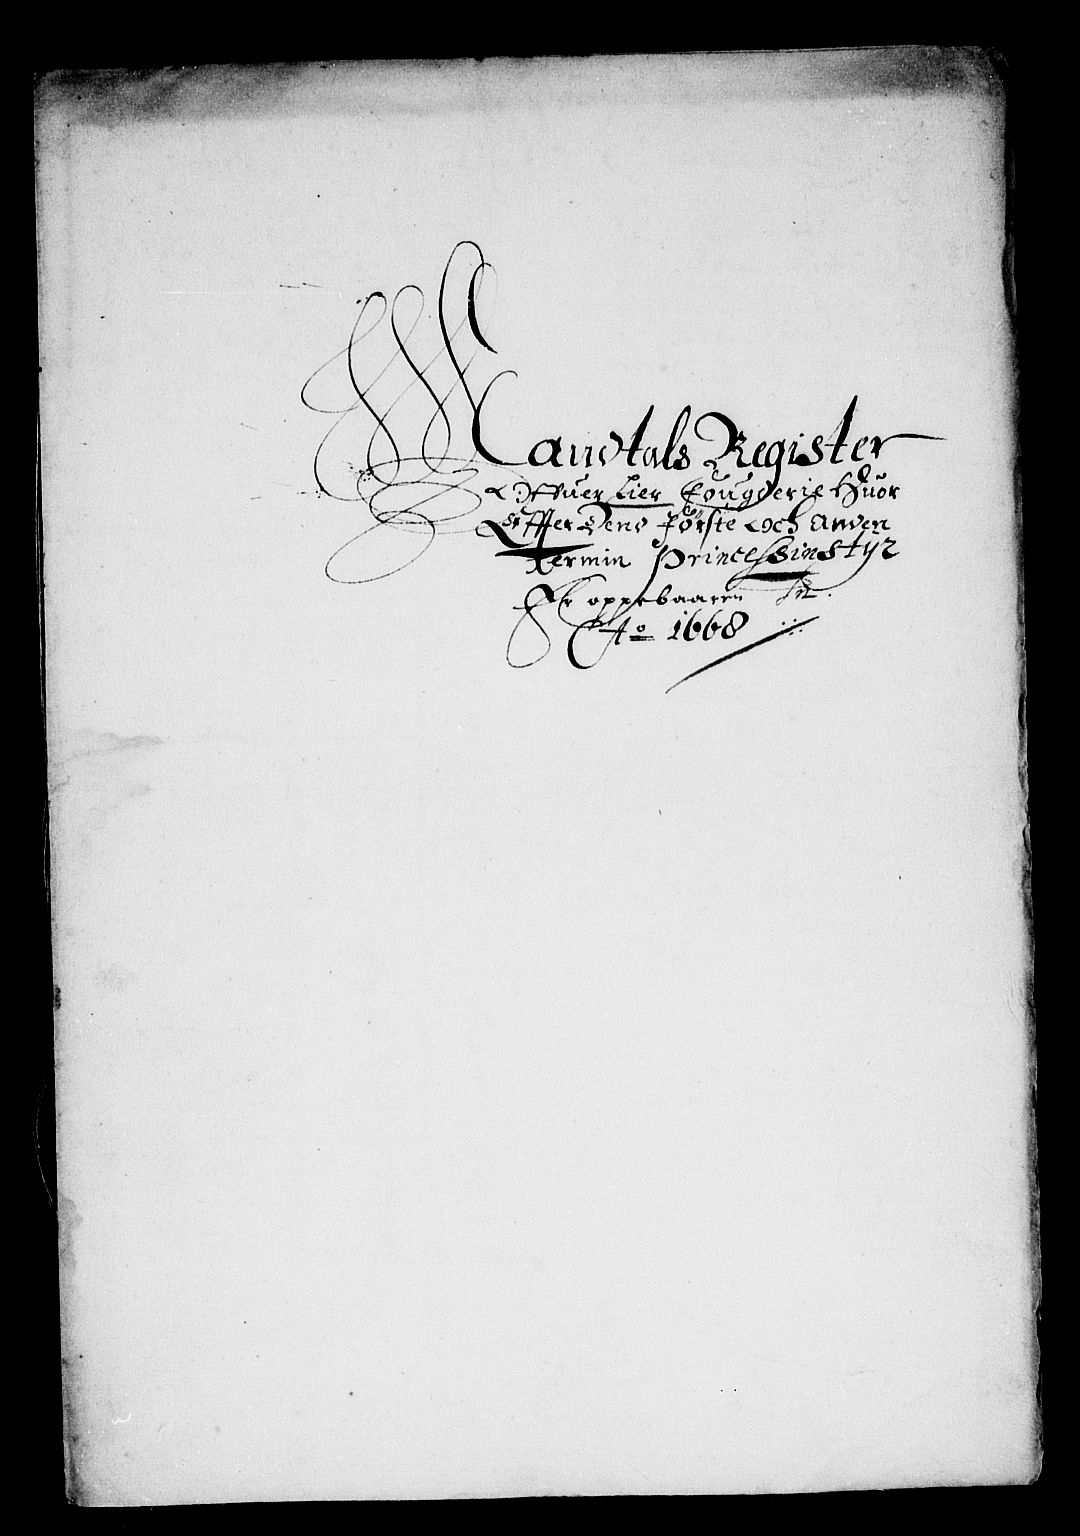 Mandtals Register
Offuer Lier Fougderie Huor
Effter Dend Første och Anden
Termin Princessinstyr
Er oppebaaren
Ao 1668